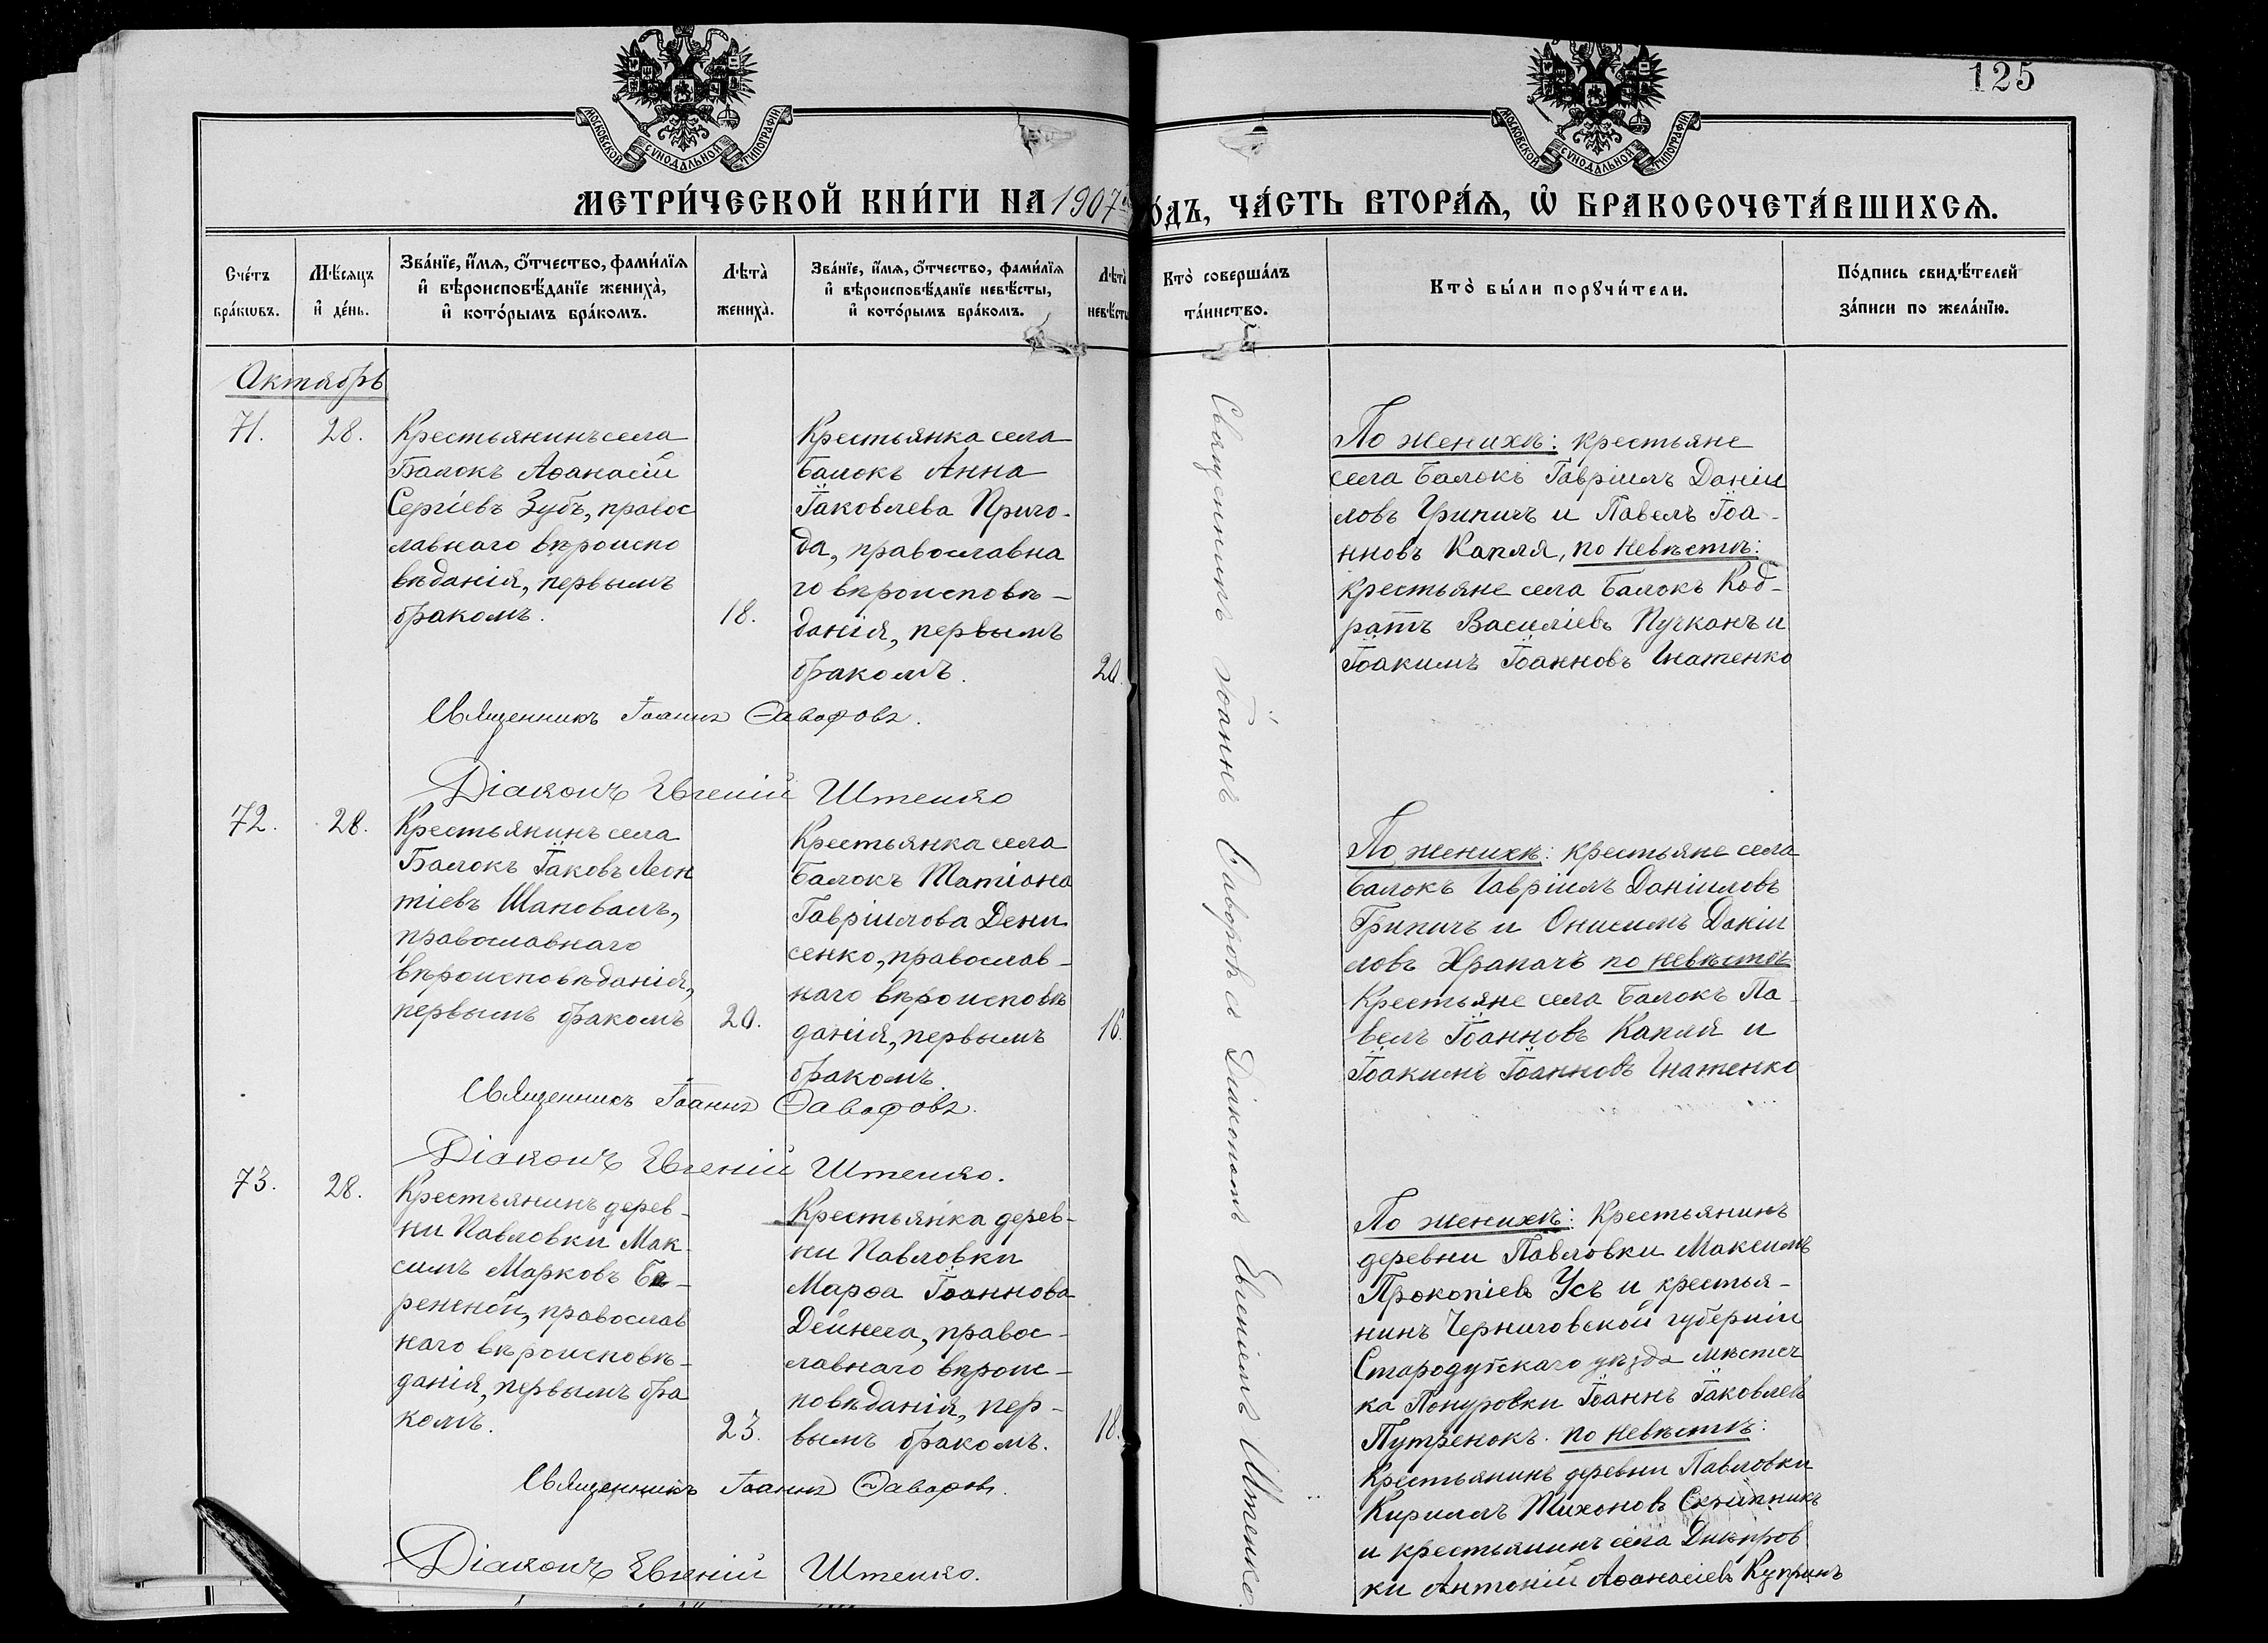 125
МОСКОВСКОЙ СѴНОДАЛЬНОЙ ТИПОГРАФІИ
МОСКОВСКОЙ СѴНОДАЛЬНОЙ ТИПОГРАФІИ
МЕТРИ́ЧЕСКОЙ КНИ́ГИ НА 1907
ЧА́СТЬ ВТОРА́Ѧ, Ѡ҆ БРАКОСОЧЕТА́ВШИХСѦ.
Сче́тъ
бра́кѡвъ.
Мѣ́сяцъ
и҆ де́нь.
Зва́нїе, и҆́мѧ, ѻ҆́тчество, фами́лїѧ
и҆ вѣроисповѣ́данїе жениха̀,
и҆ кото́рымъ бра́комъ.
Лѣта̀
жениха̀.
Зва́нїе, и҆́мѧ, ѻ҆́тчество, фами́лїѧ
и҆ вѣроисповѣ́данїе невѣ́сты,
и҆ кото́рымъ бра́комъ.
Лѣта̀
невѣ́сты
Кто̀ соверша́лъ
та́инство.
Кто̀ бы́ли порꙋчи́тели.
По́дпись свидѣ́телей
за́писи по жела́нїю.
Октябрь
71.
28.
Крестьянинъ села
Балокъ Аѳанасій
Сергіевъ Зубъ, правос
лавнаго вѣроиспо
вѣданія, первымъ
бракомъ.
18.
Крестьянка села
Балокъ Анна
Іаковлева Приго-
да, православна
го вѣроисповѣ-
данія, первымъ
бракомъ.
20.
По женихѣ: крестьяне
села Балокъ Гавріилъ Даніи
ловъ Грипичъ и Павелъ Іоа-
нновъ Капля, по невѣстѣ:
крестьяне села Балокъ Код-
ратъ Василіевъ Пучканъ и
Іоакимъ Іоанновъ Гнатенко
Священникъ Іоаннъ Саваѳовъ.
Діаконъ Евгеній Штенко
72.
28.
Крестьянинъ села
Балокъ Іаковъ Леон
тіевъ Шаповалъ,
православнаго
вѣроисповѣданія,
первымъ бракомъ
20.
Крестьянка села
Балокъ Татіана
Гавріилова Дени
сенко, православ-
наго вѣроисповѣ
данія, первымъ
бракомъ.
16.
По женихѣ: крестьяне села
Балокъ Гавріилъ Даніиловъ
Грипичъ и Онисимъ Даніи
ловъ Храпачъ по невѣстѣ
Крестьяне села Балокъ Па-
велъ Іоанновъ Капля и
Іоакимъ Іоанновъ Гнатенко
Священникъ Іоаннъ
Діаконъ Евгеній Штенко.
73.
28.
Крестьянинъ дерев-
ни Павловки Мак-
симъ Марковъ Бе-
ренной, православ
наго вѣроисповѣ-
данія, первымъ бра
комъ.
23.
Крестьянка дерев-
ни Павловки
Марѳа Іоаннова
Дейнега, правос-
лавнаго вѣроис-
повѣданія, пер-
вымъ бракомъ.
18.
По женихѣ: Крестьянинъ
деревни Павловки Максимъ
Прокопіевъ Усъ и крестья-
нинъ Черниговской губерніи
Стародубскаго уѣзда мѣстеч
ка Понуровки Іоаннъ Іаковлевъ
Путренокъ. по невѣстѣ:
Крестьянинъ деревни Павловки
Кириллъ Тихоновъ Скрипникъ
и крестьянинъ села Днѣпров
ки Антоній Аѳанасіевъ Купринъ
Священникъ Іоаннъ
Діаконъ Евгеній Штенко.
Священникъ Іоаннъ съ Діакономъ Евгеніемъ Штенко.